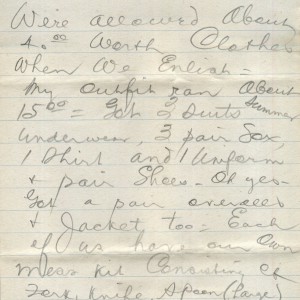 We're allowed About
40.00 Worth Clothes
When We Enlist -
My outfit ran About
15.00 = Got 2 Suits Summer
underwear, 3 pair Sox,
1 Shirt and 1 Uniform
& pair Shoes - Oh yes -
Got a pair overalls
& Jacket too. Each
of us have our Own
mess kit Consisting of
Fork, Knife, Spoon (large)